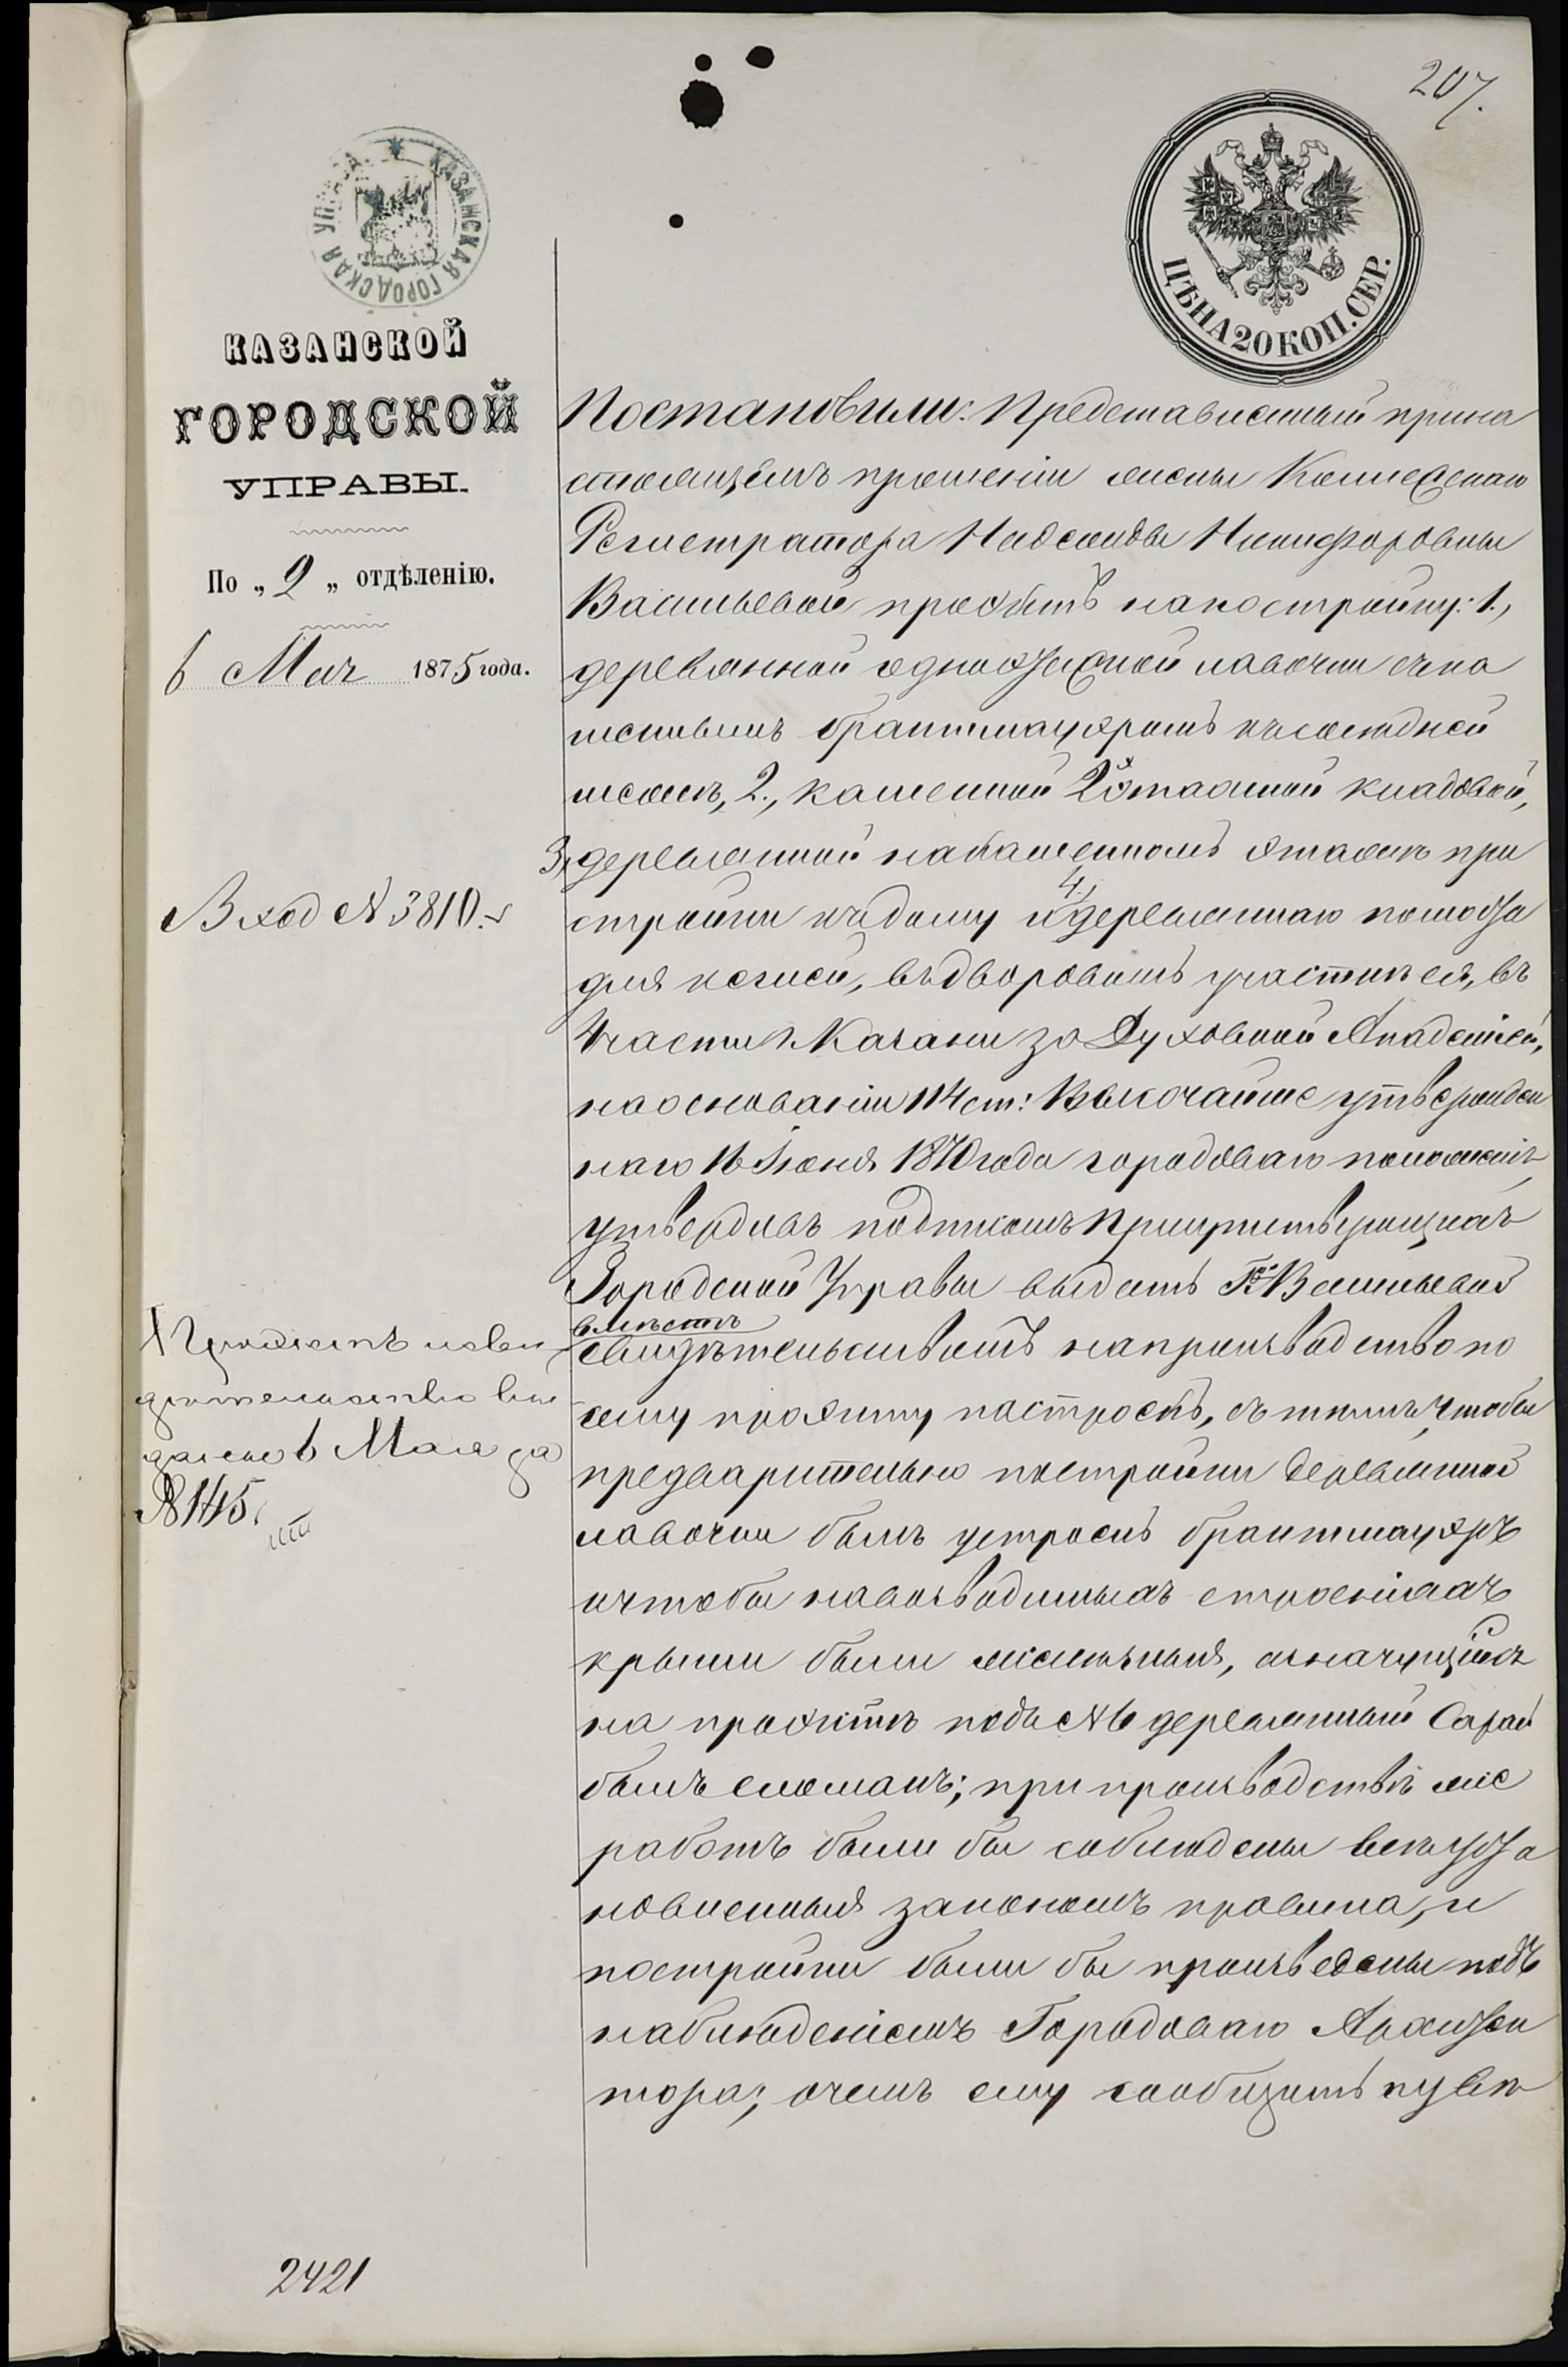 207.
КАЗАНСКАЯ ГОРОДСКАЯ УПРАВА
ЦѢНА 20 КОП. СЕР.
КАЗАНСКОЙ
ГОРОДСКОЙ
УПРАВЫ.
По „2„ отдѣленію.
6 Мая 1875 года.
Вход № 3810.
X Проэктъ и сви
дѣтельство вы
даны 6 Мая за
№ 145.
2421
Постановили: Представленный при на
стоящемъ прошеніи жены Коллежскаго
Регистратора Надежды Никифоровны
Васильевой проэктъ на постройку: 1.,
деревянной одноэтажной лавочки съ ка
меннымъ брантмауэромъ къ сосѣдней
межѣ, 2., каменной 2х этажной кладовой,
3, деревянной на каменномъ этажѣ при
стройки къ дому и 4, деревяннаго навеса
для келей, въ дворовомъ участкѣ ея, въ
4 части г. Казани за Духовной Академіей,
на основаніи 114 ст: Высочайше утвержден
наго 16 Іюня 1870 года городоваго положенія,
утвердивъ подписомъ присутствующихъ
Городской Управы выдать Г-жѣ Васильевой
вмѣстѣ
съ свидѣтельствомъ на производство по
сему проэкту построекъ, съ тѣмъ, чтобы
предварительно постройки деревянной
лавочки былъ устроенъ брантмауэръ
и чтобы на возводимыхъ строеніяхъ
крыши были желѣзныя, а значущійся
на проэктѣ подъ № 6 деревянный сарай
былъ сломанъ; при производствѣ же
работъ были бы соблюдены всѣ уста
новленныя закономъ правила, и
постройки были бы произведены подъ
наблюденіемъ Городоваго Архитек
тора; о чемъ ему сообщить